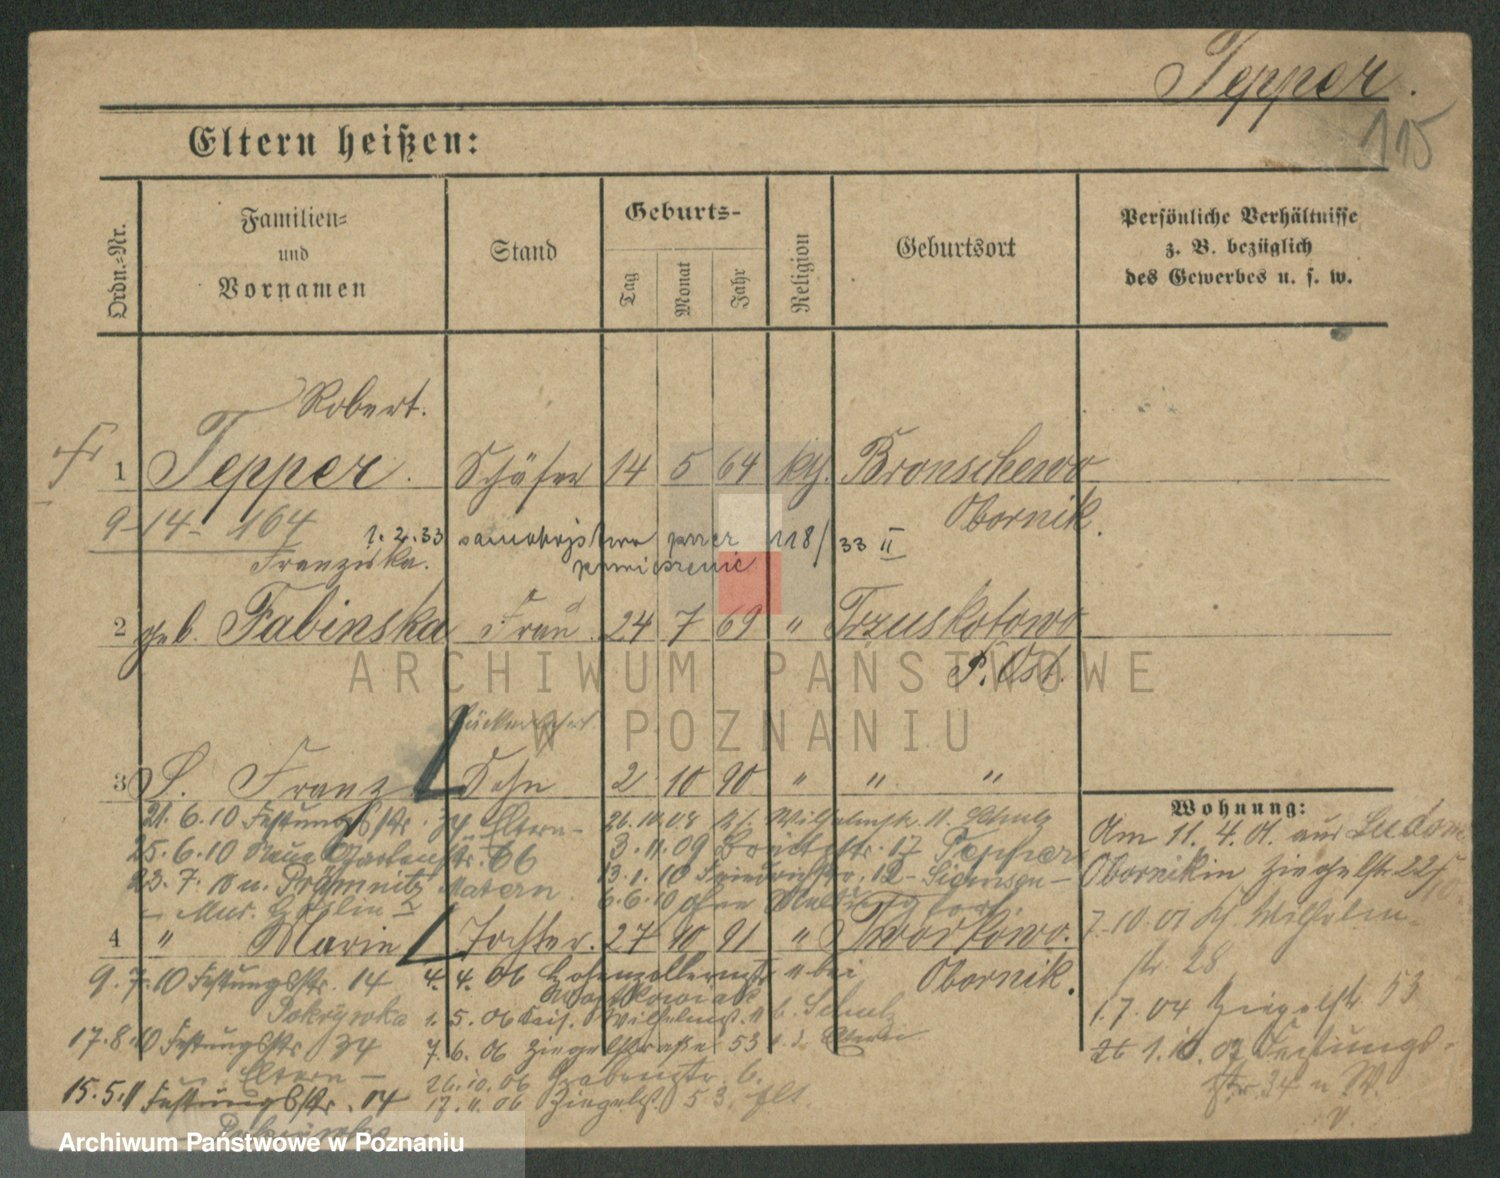 Tepper.
115
Eltern heißen:
Ordn.-Nr.
Familien-
und
Vornamen
Stand
Geburts-
Tag
Monat
Jahr
Religion
Geburtsort
Persönliche Verhältnisse
z. B. bezüglich
des Gewerbes u. s. w.
Robert.
1 Tepper. Schäfer 14 5 64 kth. Bronschewo
Obornik.
9-14- 164
1.2.33 samobójstwo przez 118/33 II
Franziska. powieszenie
2 geb. Fabinska Frau 24 7 69 " Trzuskotowo
P. Ost.
3 S. Franz Sohn 2 10 90 " " "
Wohnung:
21.6.10 Festungsstr. Eltern- 26.10.08 Wilhelmstr. 11. Schulz
Am 11.4.01. aus Ludom
25.6.10 Neue Gartenstr. 66 3.11.09 17 Tepper
Obornik in Ziegelstr. 22
23.7.10 n. Pramnitz Matern 13.1.10 Friedrichstr. 12-
Mur. Goslin 6.6.10 ohne Meldung fort.
4 " Marie Tochter. 27 10 91 " Tworkowo.
Obornik.
7.10.01 Wilhelm-
str 28
9.7.10 Festungsstr. 14 4.4.06 Hohenzollernstr. bei
Pokrywka 1.5.06 Kais. Wilhelmst. 11 b. Schulz
1.7.04 Ziegelstr 53
17.8.10 Festungsstr 34 7.6.06 Ziegelstraße 53
Eltern - 26.10.06 Grabenstr. 6.
1.10.07 Festungs-
str. 34 n W.
15.5.11 Festungsstr. 14 17.11.06 Ziegelst. 53.
Pokrywka
ARCHIWUM PAŃSTWOWE
W POZNANIU
Archiwum Państwowe w Poznaniu